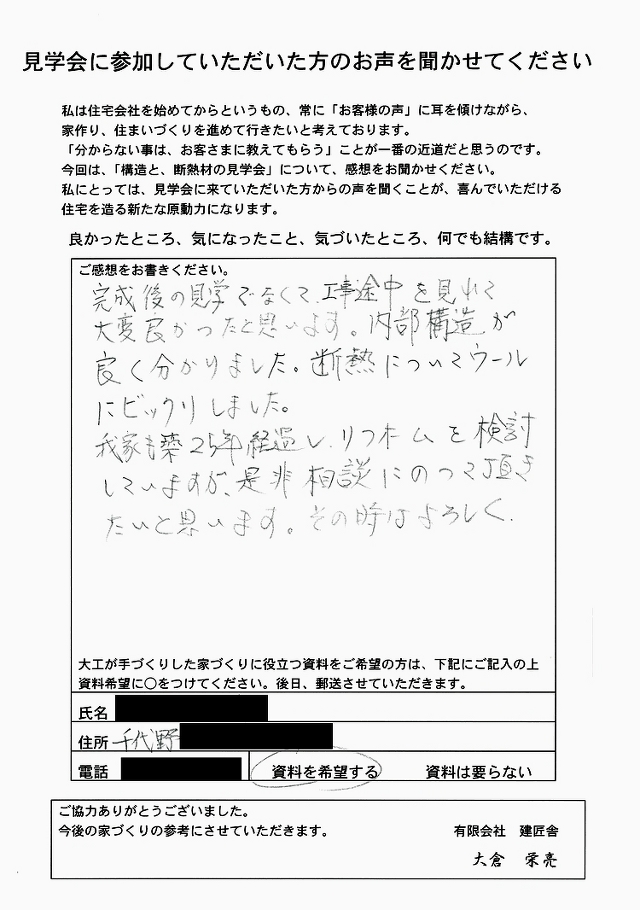 見学会に参加していただいた方のお声を聞かせてください
私は住宅会社を始めてからというもの、常に「お客様の声」に耳を傾けながら、
家作り、住まいづくりを進めて行きたいと考えております。
「分からない事は、お客さまに教えてもらう」ことが一番の近道だと思うのです。
今回は、「構造と、断熱材の見学会」について、感想をお聞かせください。
私にとっては、見学会に来ていただいた方からの声を聞くことが、喜んでいただける
住宅を造る新たな原動力になります。
良かったところ、気になったこと、気づいたところ、何でも結構です。
ご感想をお書きください。
完成後の見学でなくて、工事途中を見れて
大変良かったと思います。内部構造が
良く分かりました。断熱についてウール
にビックリしました。
我家も築25年経過し、リフホームを検討
していますが、是非相談にのって頂き
たいと思います。その時はよろしく.
大工が手づくりした家づくりに役立つ資料をご希望の方は、下記にご記入の上
資料希望に○をつけてください。後日、郵送させていただきます。
氏名
住所 千代野
電話 資料を希望する 資料は要らない
ご協力ありがとうございました。
今後の家づくりの参考にさせていただきます。 有限会社 建匠舎
大倉 栄亮